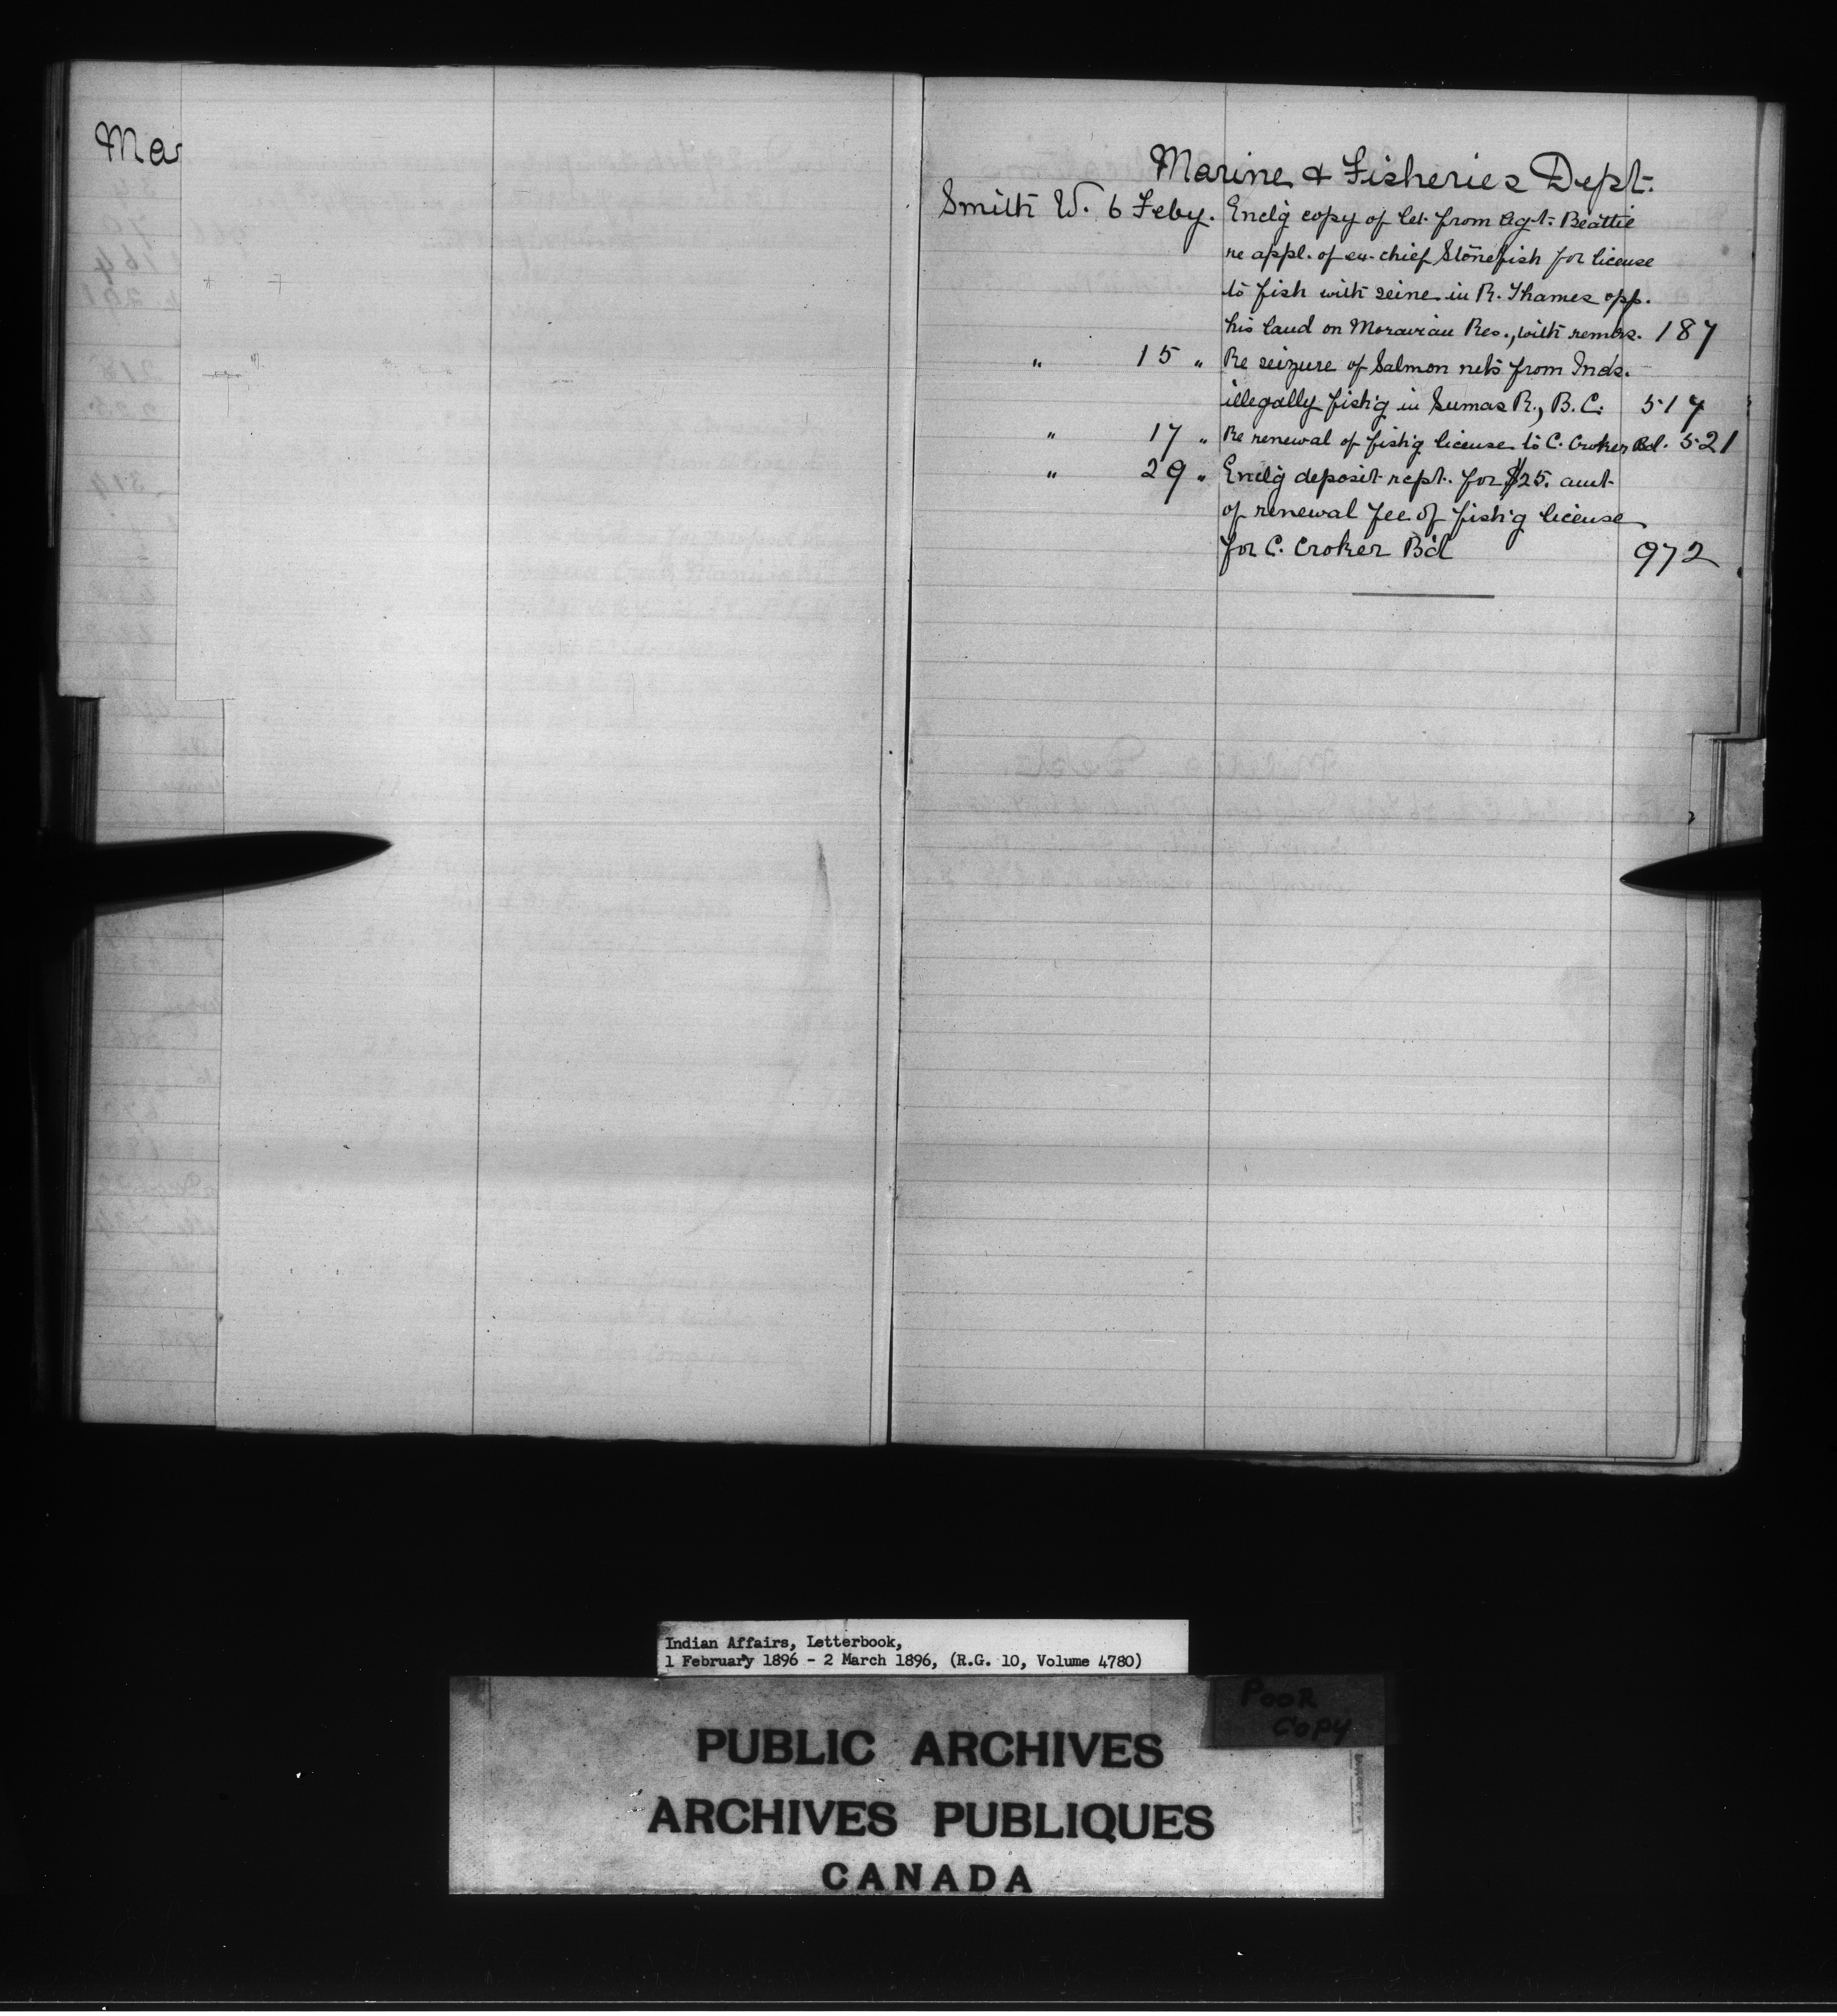 Mar
Marine & Fisheries Dept.
Smith W. 6 Feby. Enclg copy of let. from Agt. Beattie
re appl. of ex-chief Stonefish for license
to fish with seine in R. Thames opp.
his land on Moravian Res., with remks. 187
" 15 " Re seizure of Salmon nets from Inds.
illegally fish'g in Sumas R., B.C. 517
" 17 " Re renewal of fish'g license to C. Croker Bd. 521
" 29 " Enclg deposit rcpt. for $25. amt
of renewal fee of fish'g license
for C. Croker Bd 972
Indian Affairs, Letterbook,
1 February 1896 - 2 March 1896, (R.G. 10, Volume 4780)
POOR
COPY
PUBLIC ARCHIVES
ARCHIVES PUBLIQUES
CANADA